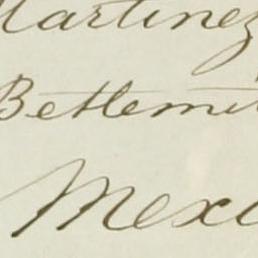 Martinez
Betlemi
Mexi